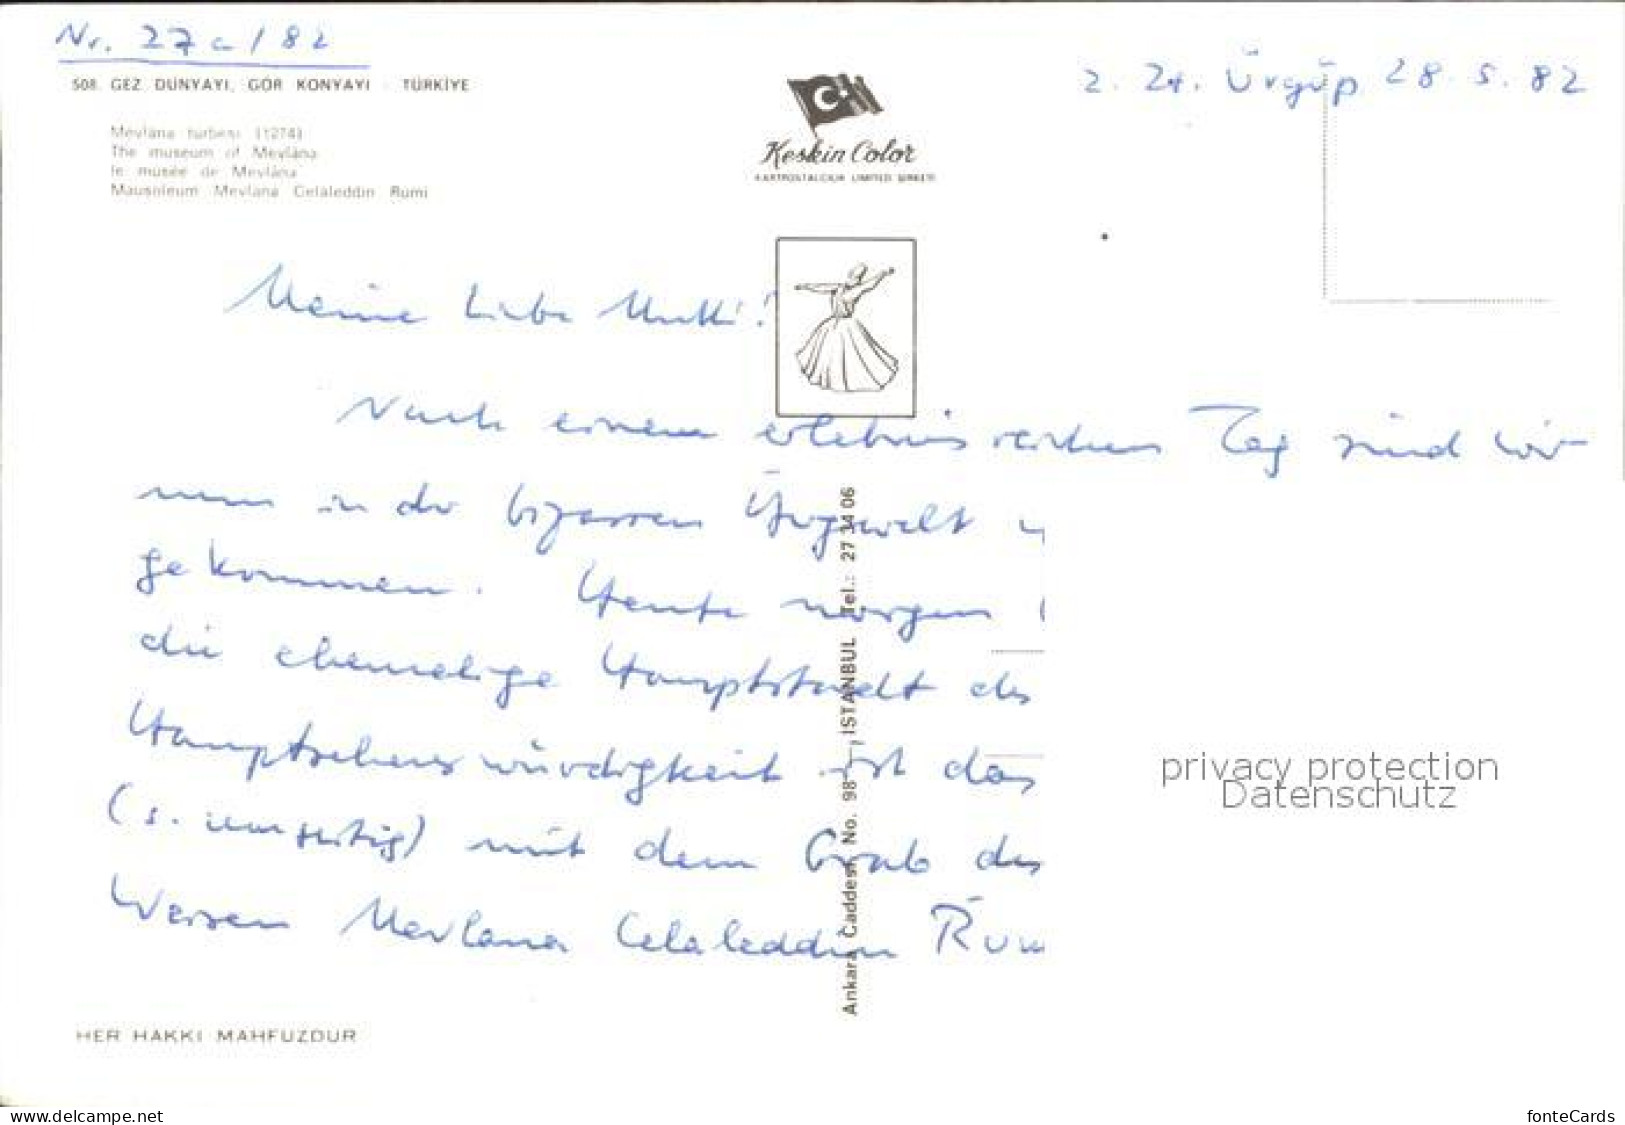 Nr. 27a/82
z. Zt. Ürgüp 28.5.82
508. GEZ DÜNYAYI, GÖR KONYAYI - TÜRKİYE
Mevlâna türbesi (1274)
The museum of Mevlâna
le musée de Mevlâna
Mausoleum Mevlana Celâleddin Rumi
Keskin Color
KARTPOSTALCILIK LIMITED ŞİRKETİ
Meine liebe Mutti!
Nach einem erlebnisreichen Tag sind wir
nun in der bizarren
gekommen. Heute morgen
die ehemalige Hauptstadt des
Hauptsehenswürdigkeit ist das
(s. umseitig) mit dem Grab des
Weisen Mevlana Celaleddin Rum
Ankara Caddesi No. 98 ISTANBUL Tel.: 27 14 06
privacy protection
Datenschutz
HER HAKKI MAHFUZDUR
www.delcampe.net
fonteCards